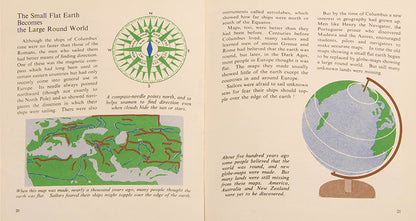 The Small Flat Earth
Becomes
the Large Round World
Although the ships of Columbus
time were no faster than those of the
Romans, the men who sailed them
had better means of finding direction.
One of these was the magnetic com-
pass which had long been used in
eastern countries but had only
recently come into general use in
Europe. Its needle always pointed
northward (though not exactly to
the North Pole) and so helped navi-
gators the direction in which their
ships were sailing. There were also
A compass-needle points north, and so
helps seamen to find direction even
when clouds hide the sun or stars.
When this map was made, nearly a thousand years ago, many people thought the
earth was flat. Sailors feared their ships might topple over the edge of the earth.
20
instruments called astrolabes, which
showed how far ships were north or
south of the Equator.
Maps, too, were better than they
had been before. Centuries before
Columbus lived, many sailors and
learned men of ancient Greece and
Rome had believed that the earth was
round, but later, in the Dark Ages,
most people in Europe thought it was
flat. The maps they made usually
showed little of the earth except the
countries in and around Europe.
Sailors were afraid to sail unknown
seas for fear their ships should top-
ple over the edge of the earth!
About five hundred years ago
some people believed that the
world was round, and new
globe-maps were made. But
many lands were still missing
from these maps; America,
Australia and New Zealand
were yet to be discovered.
But by the time of Columbus a new
interest in geography had grown up.
Men like Henry the Navigator, the
Portuguese prince who discovered
Madeira and the Azores, encouraged
seamen, pilots and navigators to
make accurate maps. In time the old
maps showing a small flat earth began
to be replaced by globe-maps showing
a large round world. But still many
unknown lands were missing.
21